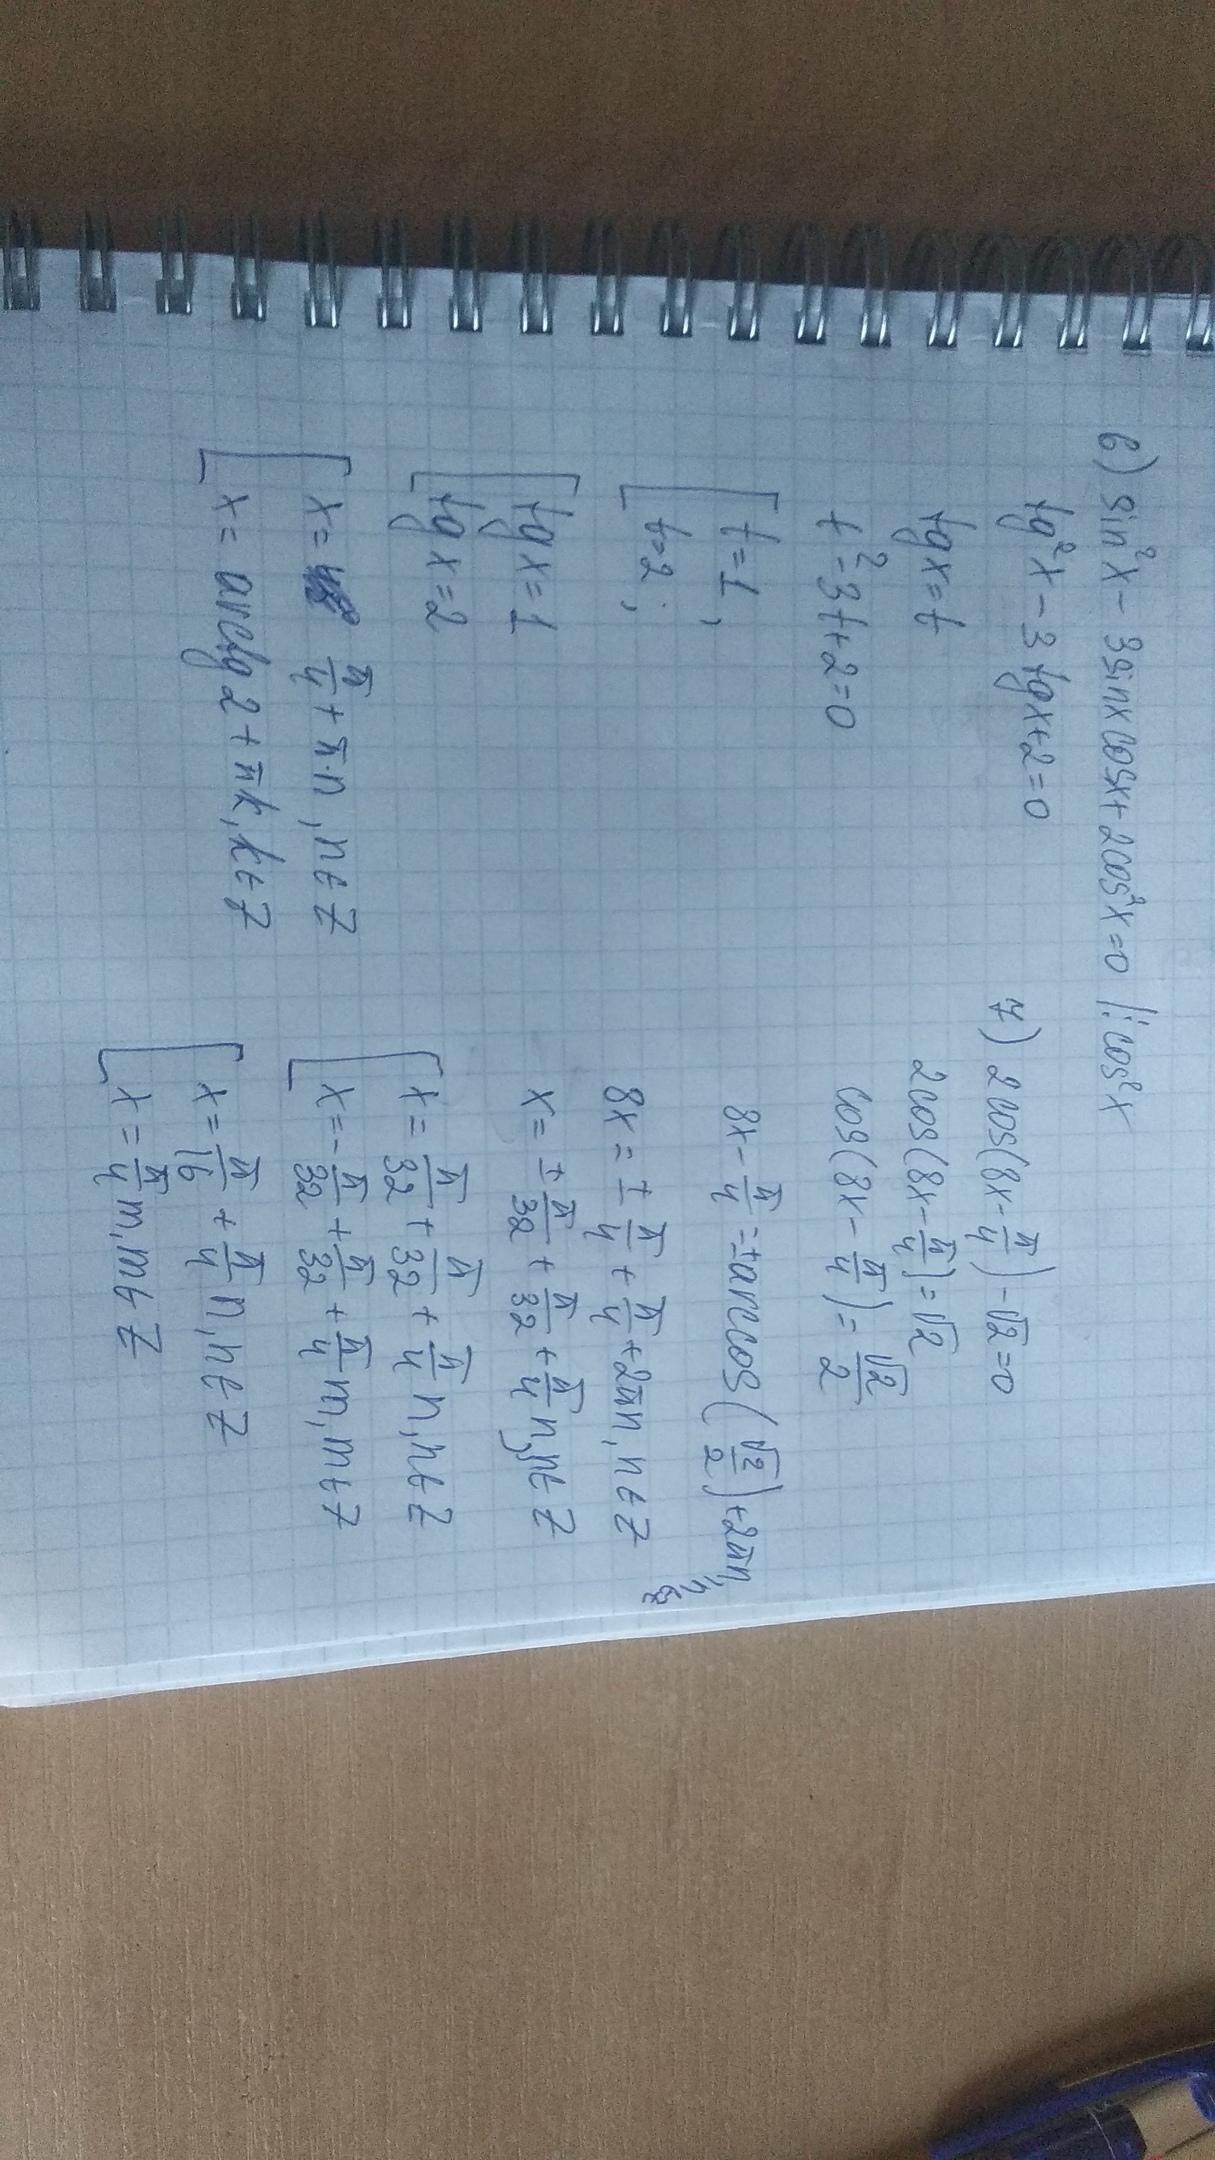 6) sin²x - 3sinxcosx + 2cos²x = 0 |: cos²x
tg²x - 3tgx + 2 = 0
tgx = t
t² - 3t + 2 = 0
[ t = 1,
t = 2;
[ tg x = 1
tg x = 2
[ x = π/4 + π·n, n ∈ Z
x = arctg 2 + πk, k ∈ Z
7) 2cos(8x - π/4) - √2 = 0
2cos(8x - π/4) = √2
cos(8x - π/4) = √2/2
8x - π/4 = ± arccos(√2/2) + 2πn, n ∈ Z
8x = ± π/4 + π/4 + 2πn, n ∈ Z
x = ± π/32 + π/32 + π/4 n, n ∈ Z
[ x = π/32 + π/32 + π/4 n, n ∈ Z
x = - π/32 + π/32 + π/4 m, m ∈ Z
[ x = π/16 + π/4 n, n ∈ Z
x = π/4 m, m ∈ Z